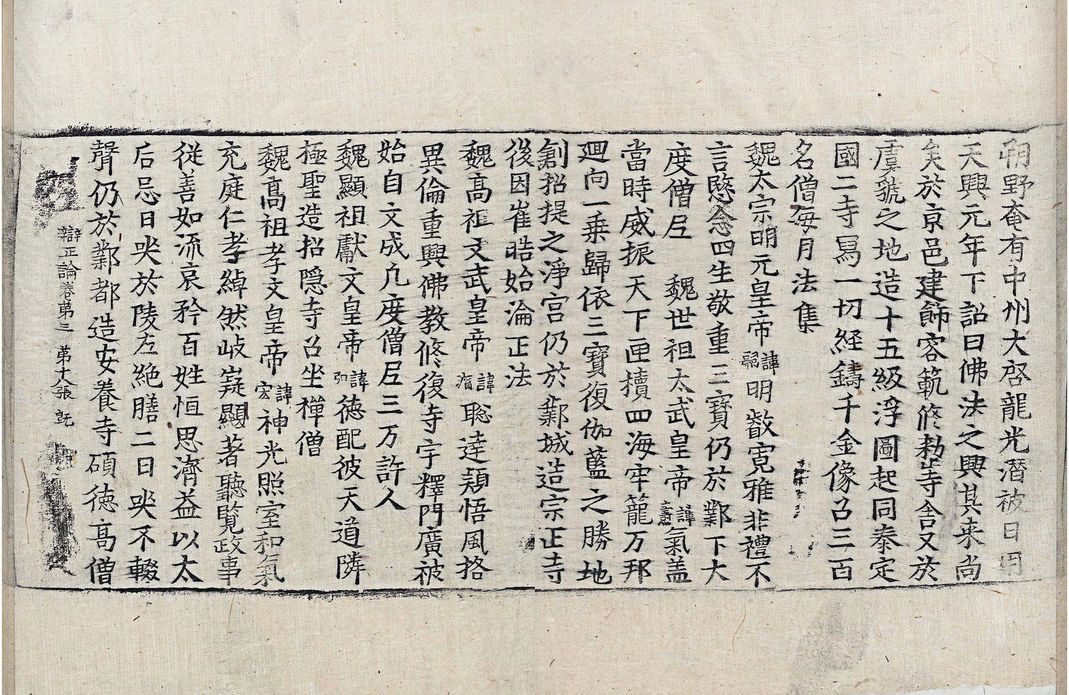 朔野奄有中州大啓龍光潛被日用
天興元年下詔曰佛法之興其来尚
矣於京邑建餝容範修勑寺舎又於
虞虢之地造十五級浮圖起同泰定
國二寺寫一切経鑄千金像召三百
名僧每月法集
魏太宗明元皇帝諱嗣明叡寬雅非禮不
言慜念四生敬重三寶仍於鄴下大
度僧尼　魏世祖太武皇帝諱燾氣盖
當時威振天下匣櫝四海牢籠万邦
迴向一乗歸依三寶復伽藍之勝地
創招提之淨宮仍於鄴城造宗正寺
後因崔晧始淪正法
魏髙祖文武皇帝諱濬聡達穎悟風挌
異倫重興佛教修復寺宇釋門廣被
始自文成凢度僧尼三万許人
魏顯祖獻文皇帝諱弘德配彼天道隣
極聖造招隠寺召坐禪僧
魏髙祖孝文皇帝諱宏神光照室和氣
充庭仁孝綽然歧嶷顯著聽覧政事
従善如流哀矜百姓恒思濟益以太
后忌日哭於陵左絶膳二日哭不輟
聲仍於鄴都造安養寺碩德髙僧
辯正論卷第三　第十八張　旣